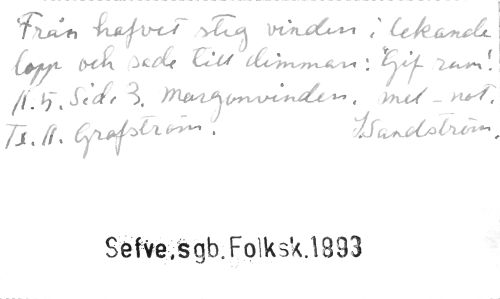 Från hafvet steg vinden i lekande
lopp och sade till dimman: "Gif rum!
N. 5. Sid. 3. Morgonvinden. mel-not.
Tx. A. Grafström. Sandström.
Sefve.sgb.Folksk.1893